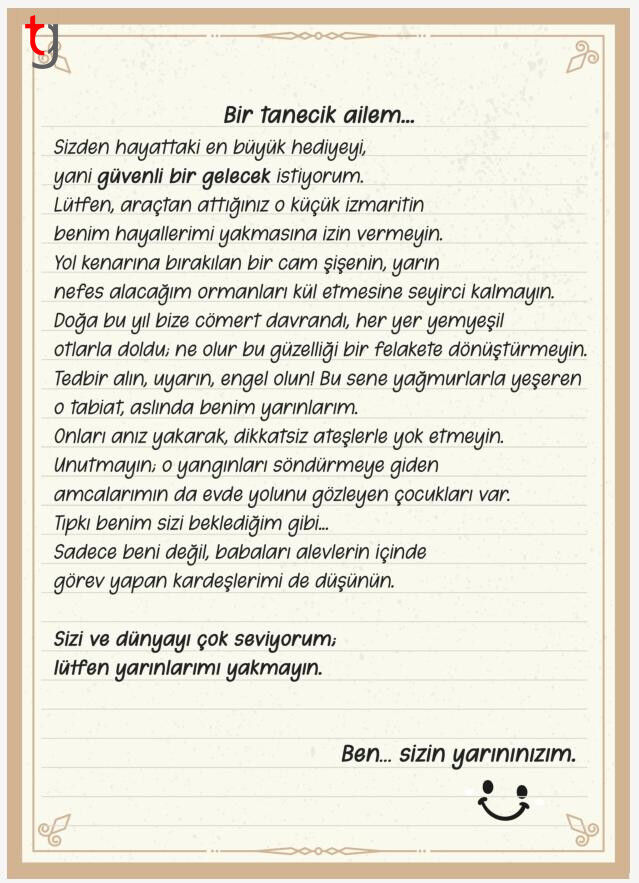 tg
Bir tanecik ailem...
Sizden hayattaki en büyük hediyeyi,
yani güvenli bir gelecek istiyorum.
Lütfen, araçtan attığınız o küçük izmaritin
benim hayallerimi yakmasına izin vermeyin.
Yol kenarına bırakılan bir cam şişenin, yarın
nefes alacağım ormanları kül etmesine seyirci kalmayın.
Doğa bu yıl bize cömert davrandı, her yer yemyeşil
otlarla doldu; ne olur bu güzelliği bir felakete dönüştürmeyin.
Tedbir alın, uyarın, engel olun! Bu sene yağmurlarla yeşeren
o tabiat, aslında benim yarınlarım.
Onları anız yakarak, dikkatsiz ateşlerle yok etmeyin.
Unutmayın; o yangınları söndürmeye giden
amcalarımın da evde yolunu gözleyen çocukları var.
Tıpkı benim sizi beklediğim gibi...
Sadece beni değil, babaları alevlerin içinde
görev yapan kardeşlerimi de düşünün.
Sizi ve dünyayı çok seviyorum;
lütfen yarınlarımı yakmayın.
Ben... sizin yarınınızım.